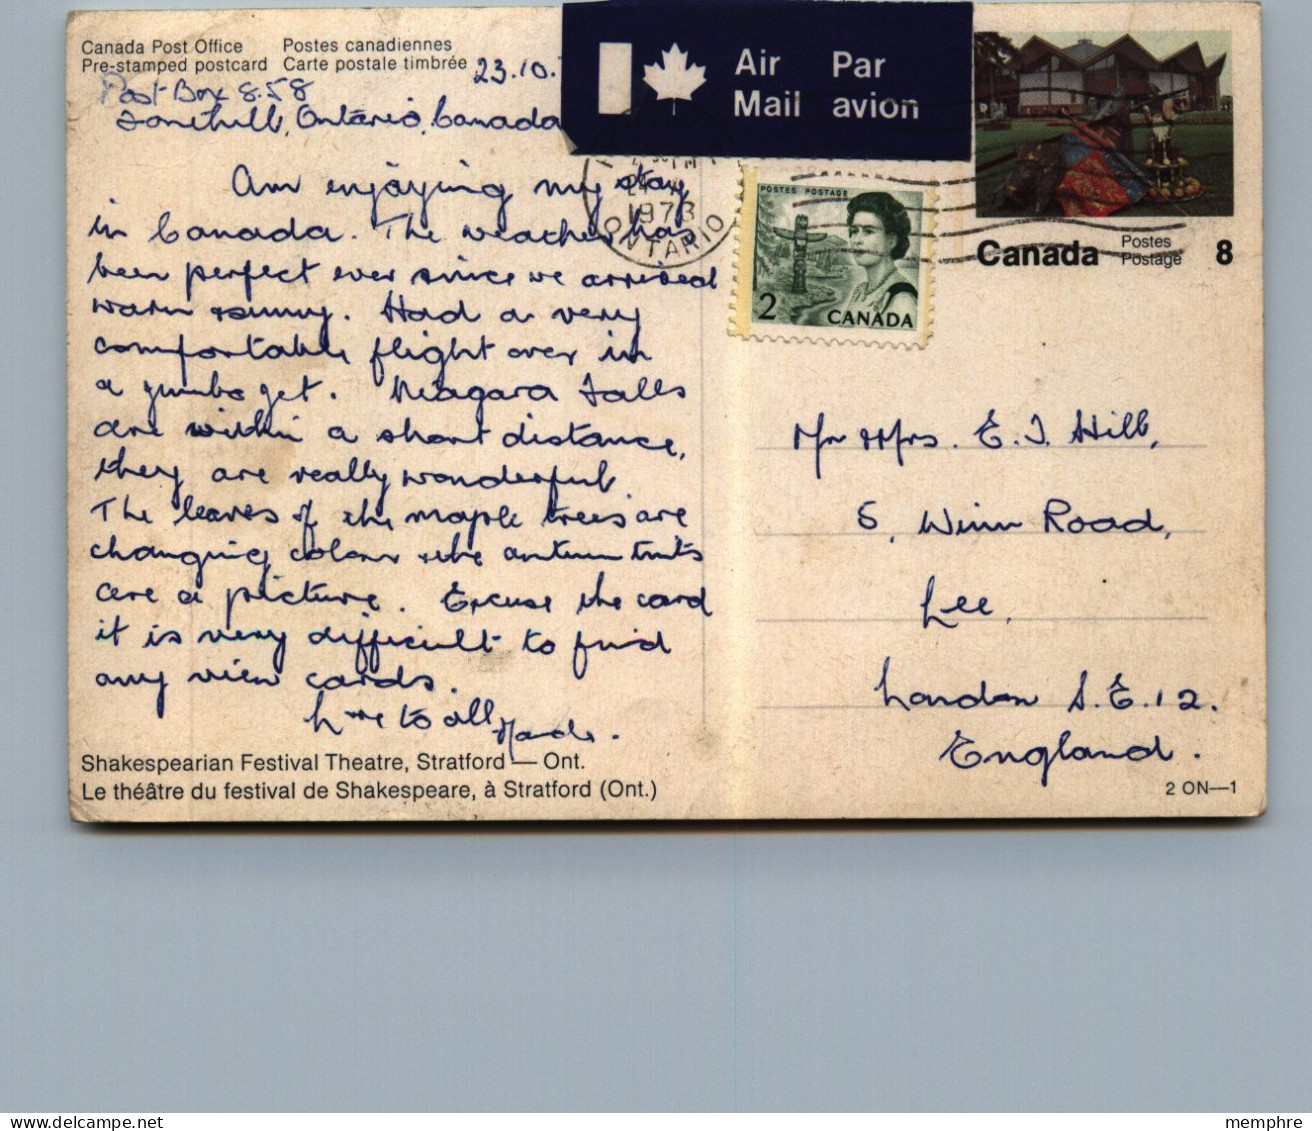 Canada Post Office Postes canadiennes
Pre-stamped postcard Carte postale timbrée
23.10.
Post Box 858
Fonthill, Ontario, Canada
Air Par
Mail avion
1973
ONTARIO
POSTES POSTAGE
2 CANADA
Canada Postes Postage 8
Am enjoying my stay
in Canada. The weather has
been perfect ever since we arrived
warm sunny. Had a very
comfortable flight over in
a jumbo jet. Niagara Falls
are within a short distance,
they are really wonderful.
The leaves of the maple trees are
changing colour & the autumn tints
are a picture. Excuse the card
it is very difficult to find
any view cards.
Love to all
Mr & Mrs. E. J. Hill,
5, Winn Road,
Lee,
London S.E.12.
England.
Shakespearian Festival Theatre, Stratford — Ont.
Le théâtre du festival de Shakespeare, à Stratford (Ont.)
2 ON—1
memphre